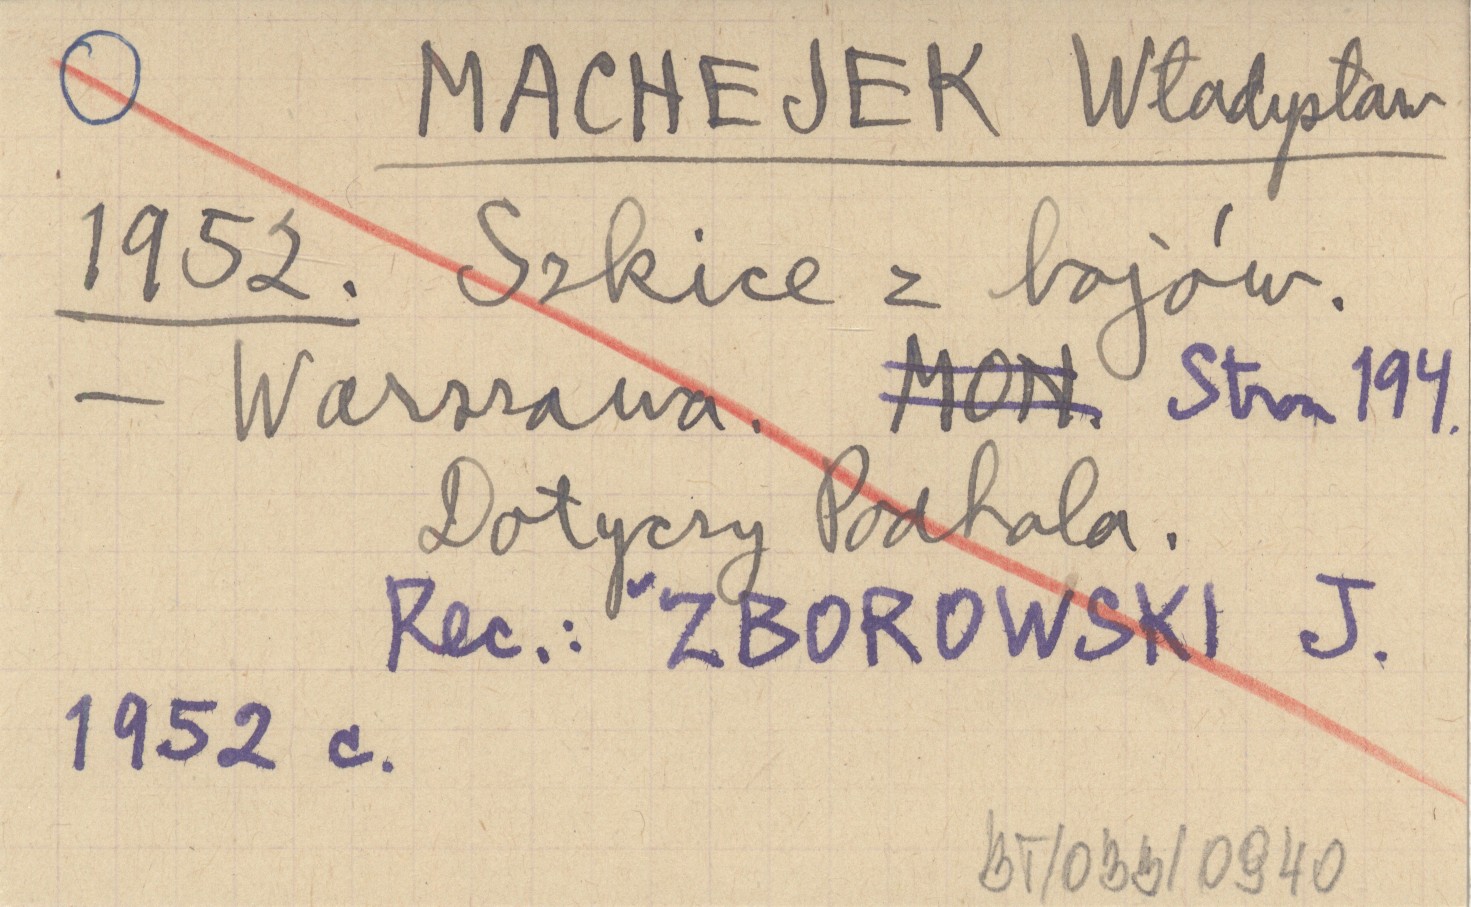 MACHEJEK Władysław
1952. Szkice z bojów.
— Warszawa. MON. Stron 194.
Dotyczy Podhala.
Rec.: ZBOROWSKI J.
1952 c.